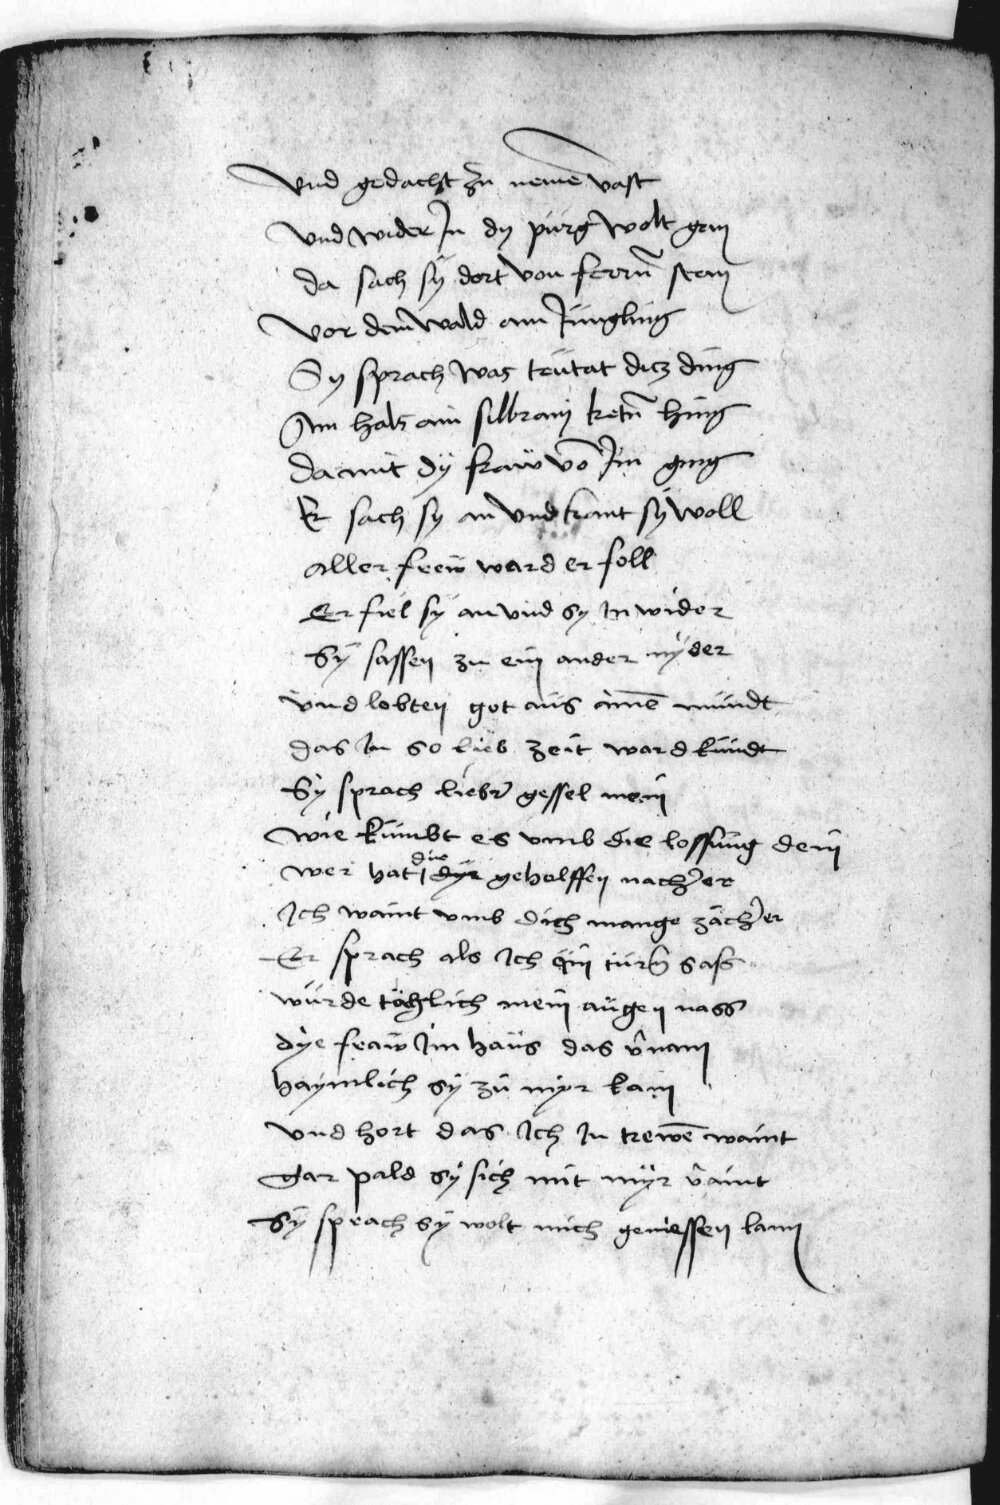 Vnd gedacht zu nemē vast
Vnd wider Jn dy pürg wolt gen
da sach sy dort von ferrn̄ sten
Vor dem Wald ain Jüngling
Sy sprach was teütat dicz ding
Am hals ain silbrain ketn̄ hing
damit dy fraw vō Jm ging
Er sach sy an vnd kant sy woll
aller frew ward er foll
Er fiel sy an vnd sy in wider
Sy sassen zu ein ander nyder
vnd lobten got aus ainē mundt
das in so lieb zeit ward kundt
Sy sprach lieber gessel mein
wie kumbt es vmb die lossung dein
wer hat dir geholffen nacher
Jch waint vmb dich mange zächer
Er sprach als ich ein türn sass
würde täglich mein augen nass
dye fraw im haus das vernam
haymlich sy zu myr kam
Vnd hort das Jch in trewē waint
Gar pald sy sich mit myr veraint
Sy sprach sy wolt mich geniessen lann